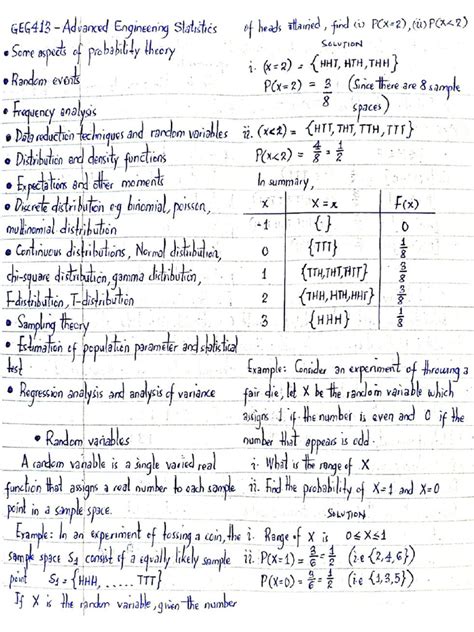 GEG413 - Advanced Engineering Statistics
• Some aspects of probability theory
• Random events
• Frequency analysis
• Data reduction techniques and random variables
• Distribution and density functions
• Expectations and other moments
• Discrete distribution e.g binomial, poisson,
multinomial distribution
• Continuous distributions, Normal distribution,
chi-square distribution, gamma distribution,
F-distribution, T-distribution
• Sampling theory
• Estimation of population parameter and statistical
test
• Regression analysis and analysis of variance
• Random variables
A random variable is a single varied real
function that assigns a real number to each sample
point in a sample space.
Example: In an experiment of tossing a coin, the
sample space S1 consist of a equally likely sample
point S1 = {HHH, ...... TTT}
If X is the random variable, given the number
of heads attained, find (i) P(X=2), (ii) P(X<2)
SOLUTION
i. (x=2) = {HHT, HTH, THH}
P(X=2) = 3/8 (Since there are 8 sample
spaces)
ii. (x<2) = {HTT, THT, TTH, TTT}
P(X<2) = 4/8 = 1/2
In summary,
X X=x F(x)
-1 {·} 0
0 {TTT} 1/8
1 {TTH, THT, HTT} 3/8
2 {THH, HTH, HHT} 3/8
3 {HHH} 1/8
Example: Consider an experiment of throwing a
fair die, let X be the random variable which
assigns 1 if the number is even and 0 if the
number that appears is odd.
i. What is the range of X
ii. Find the probability of X=1 and X=0
SOLUTION
i. Range of X is 0≤X≤1
ii. P(X=1) = 3/6 = 1/2 (i.e {2,4,6})
P(X=0) = 3/6 = 1/2 (i.e {1,3,5})